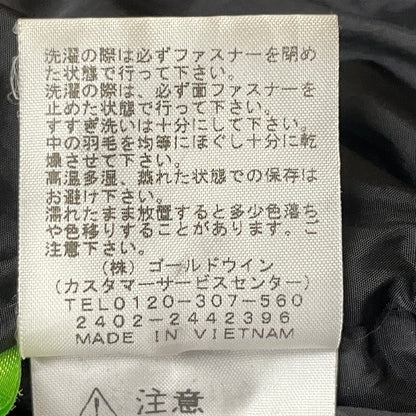 洗濯の際は必ずファスナーを閉め
た状態で行って下さい。
洗濯の際は、必ず面ファスナーを
止めた状態で行って下さい。
すすぎ洗いは十分にして下さい。
中の羽毛を均等にほぐし十分に乾
燥させて下さい。
高温多湿、蒸れた状態での保存は
お避け下さい。
濡れたまま放置すると多少色落ち
や色移りすることがあります。ご
注意下さい。
(株) ゴールドウイン
(カスタマーサービスセンター)
TEL0120-307-560
2402-2442396
MADE IN VIETNAM
注意